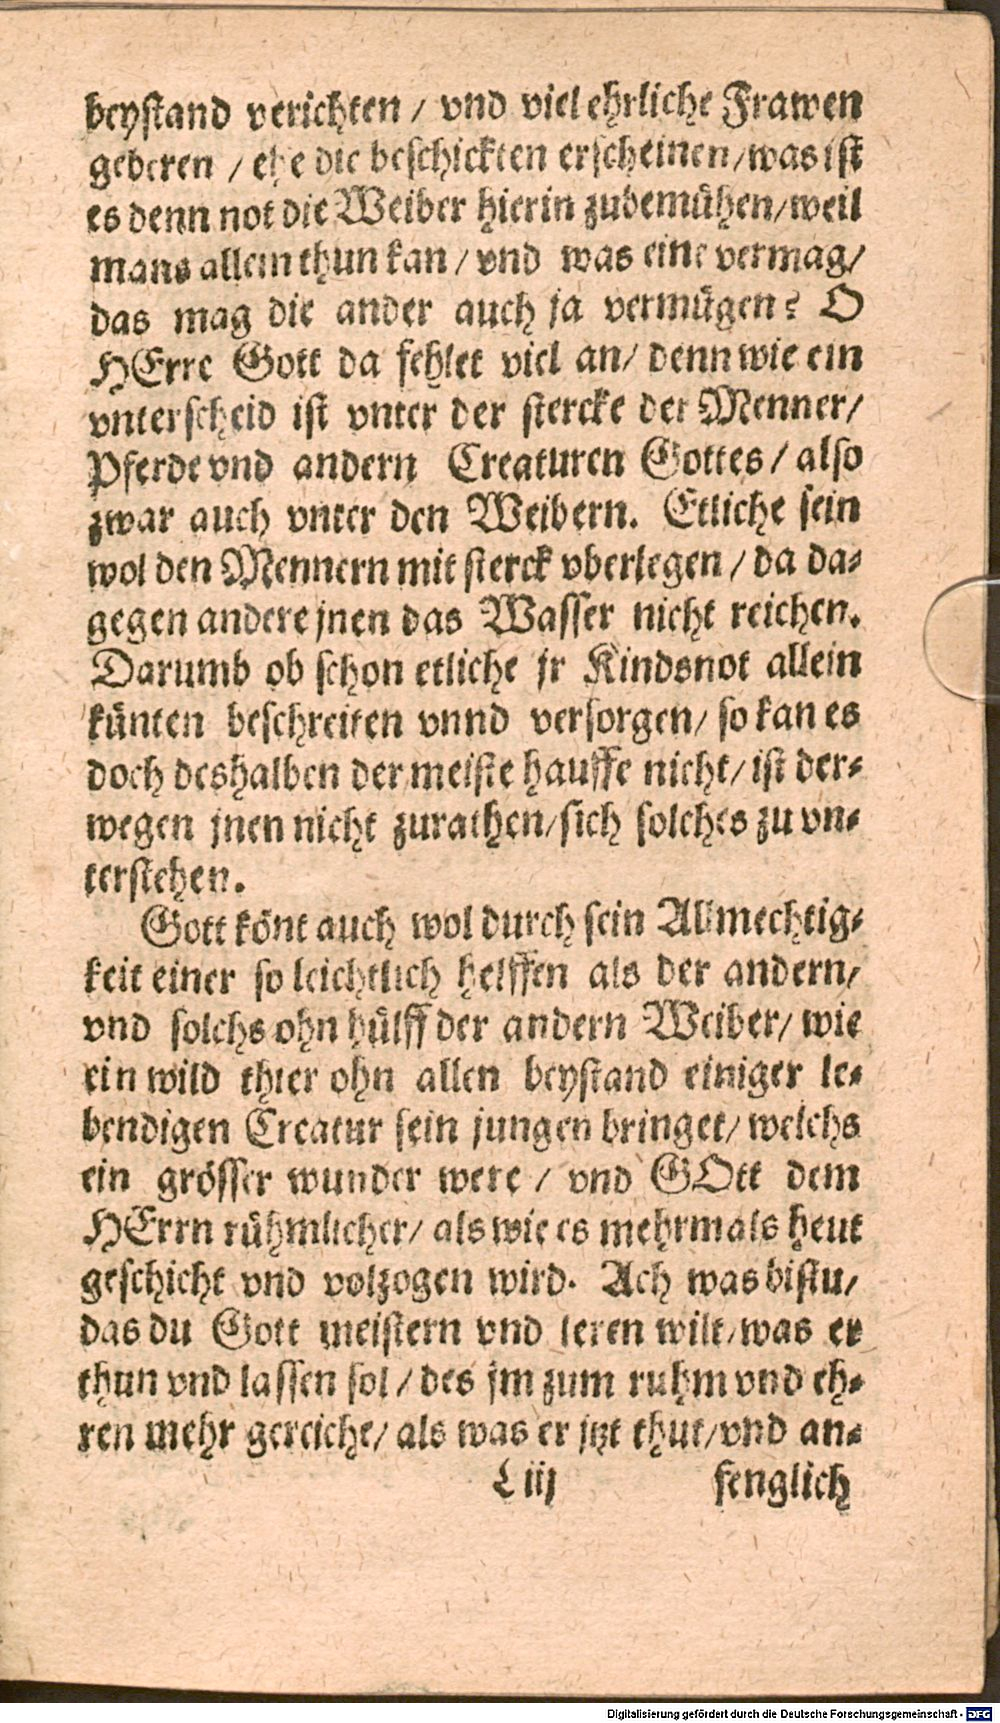 beystand verichten / vnd viel ehrliche Frawen
geberen / ehe die beschickten erscheinen/was ist
es denn not die Weiber hierin zubemühen/weil
mans allein thun kan / vnd was eine vermag/
das mag die ander auch ja vermügen? O
HErre Gott da fehlet viel an/ denn wie ein
vnterscheid ist vnter der stercke der Menner/
Pferde vnd andern Creaturen Gottes / also
zwar auch vnter den Weibern. Etliche sein
wol den Mennern mit sterck vberlegen / da da-
gegen andere jnen das Wasser nicht reichen.
Darumb ob schon etliche jr Kindsnot allein
künten beschreiten vnnd versorgen/ so kan es
doch deshalben der meiste hauffe nicht/ ist der-
wegen jnen nicht zurathen/sich solches zu vn-
terstehen.
Gott könt auch wol durch sein Allmechtig-
keit einer so leichtlich helffen als der andern/
vnd solchs ohn hülff der andern Weiber/ wie
ein wild thier ohn allen beystand einiger le-
bendigen Creatur sein jungen bringet/ welchs
ein grösser wunder were / vnd GOtt dem
HErrn rühmlicher/ als wie es mehrmals heut
geschicht vnd volzogen wird. Ach was bistu/
das du Gott meistern vnd leren wilt/was er
thun vnd lassen sol / des jm zum ruhm vnd eh-
ren mehr gereiche/ als was er jtzt thut/vnd an-
L iij fenglich
Digitalisierung gefördert durch die Deutsche Forschungsgemeinschaft - DFG